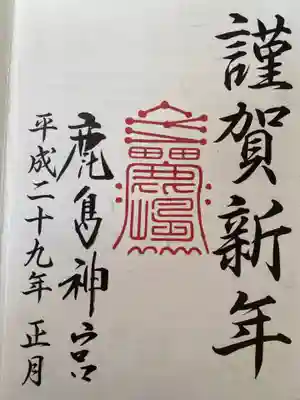 謹賀新年
鹿島神宮
平成二十九年 正月